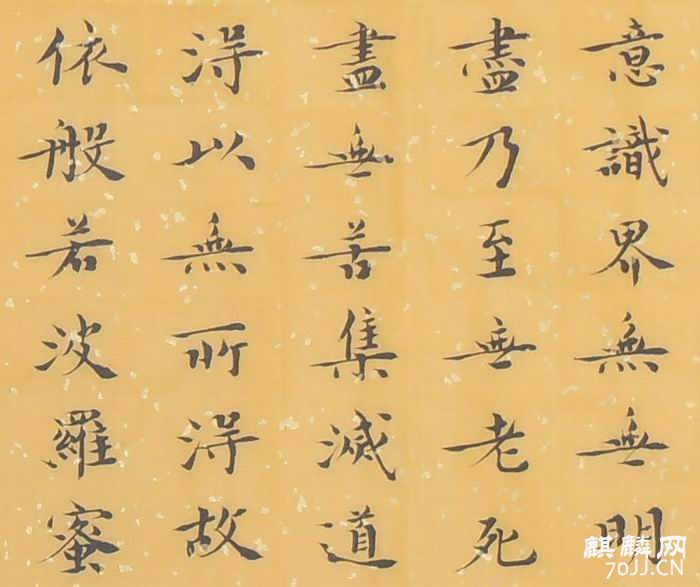 意識界無無明
盡乃至無老死
盡無苦集滅道
得以無所得故
依般若波羅蜜
麒麟网
70JJ.CN